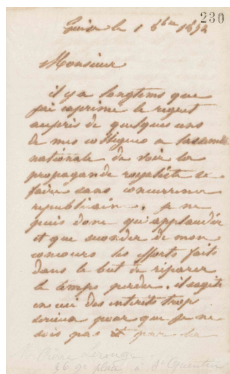 230
le 1 8bre 1872
Monsieur
il y a longtems que
j'ai exprimé le regret
auprès de quelques uns
de mes collègues a l'assemblée
nationale de voir la
propagande royaliste se
faire sans concurrence
républicaine. je ne
puis donc qu'applaudir
et que seconder de mon
concours les efforts faits
dans le but de réparer
le temps perdu. il s'agit
en ici des interêts trop
sérieux pour que je ne
sois pas
place à St Quentin